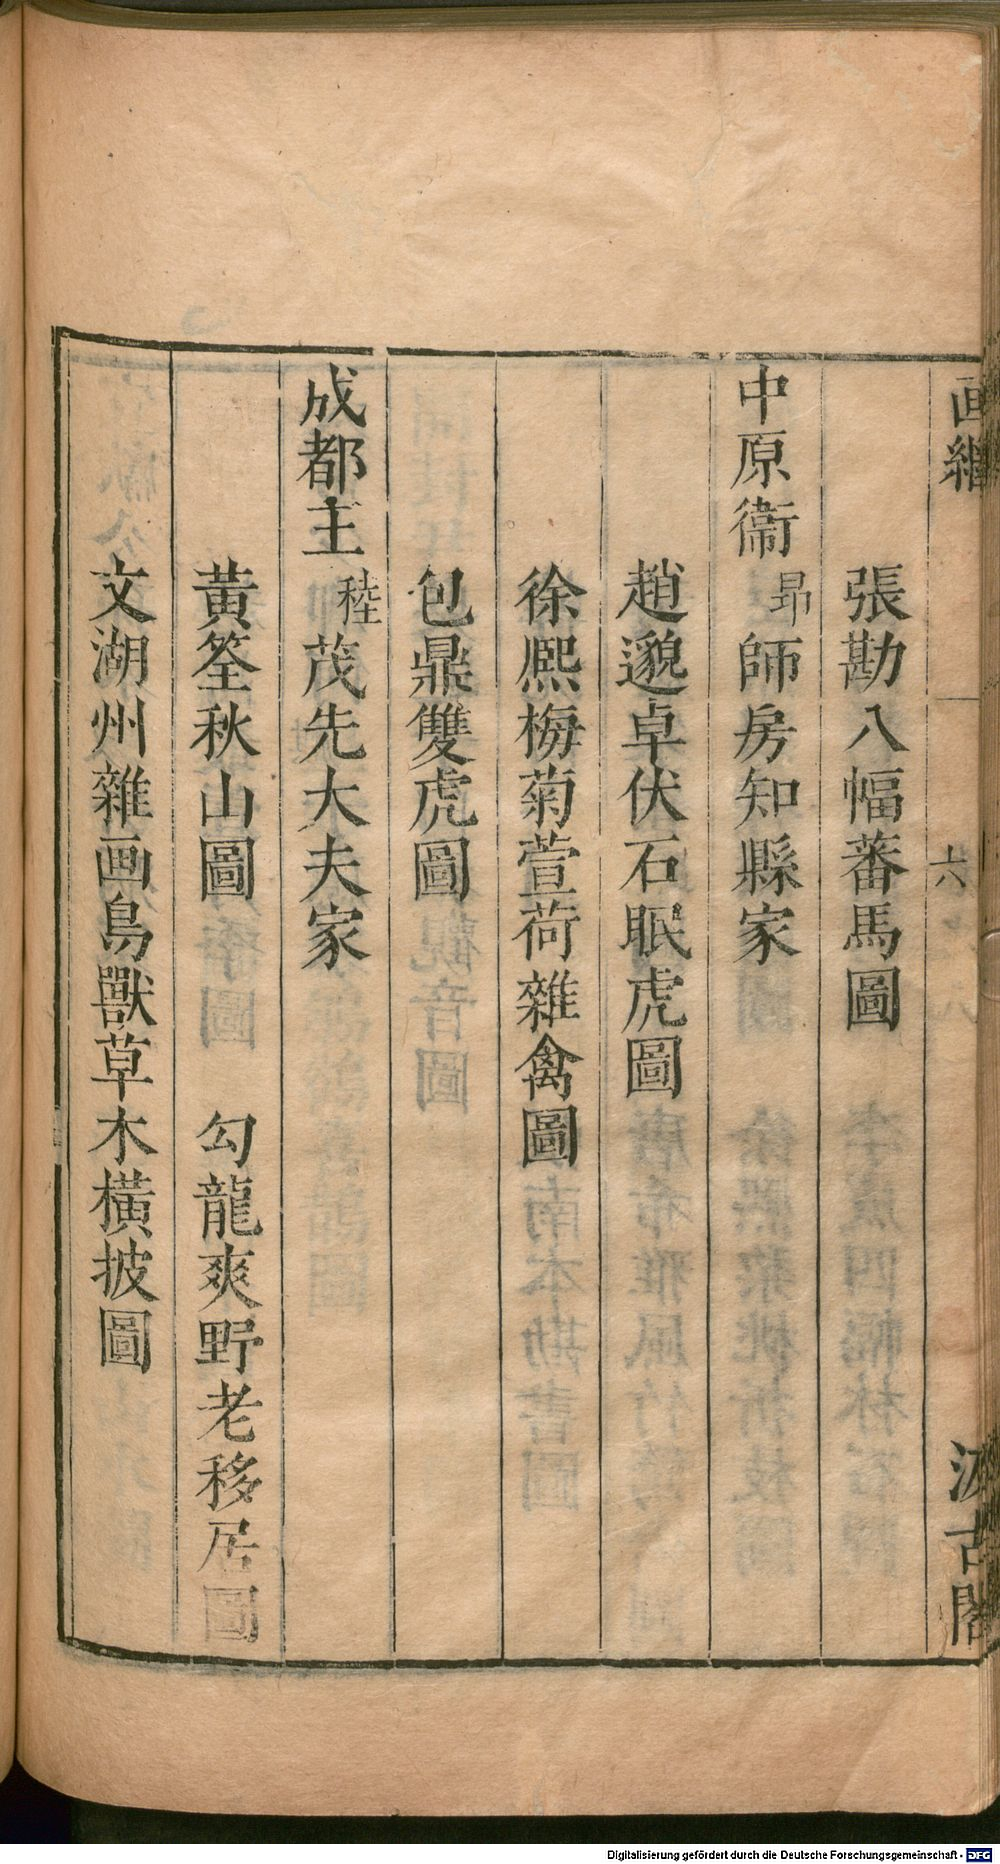 画繼
六
汲古閣
張勘八幅蕃馬圖
中原衞昻師房知縣家
趙邈卓伏石眠虎圖
徐熙梅菊萱荷雜禽圖
包鼎雙虎圖
成都主稑茂先大夫家
黃筌秋山圖　勾龍爽野老移居圖
文湖州雜画鳥獸草木橫披圖
Digitalisierung gefördert durch die Deutsche Forschungsgemeinschaft - DFG